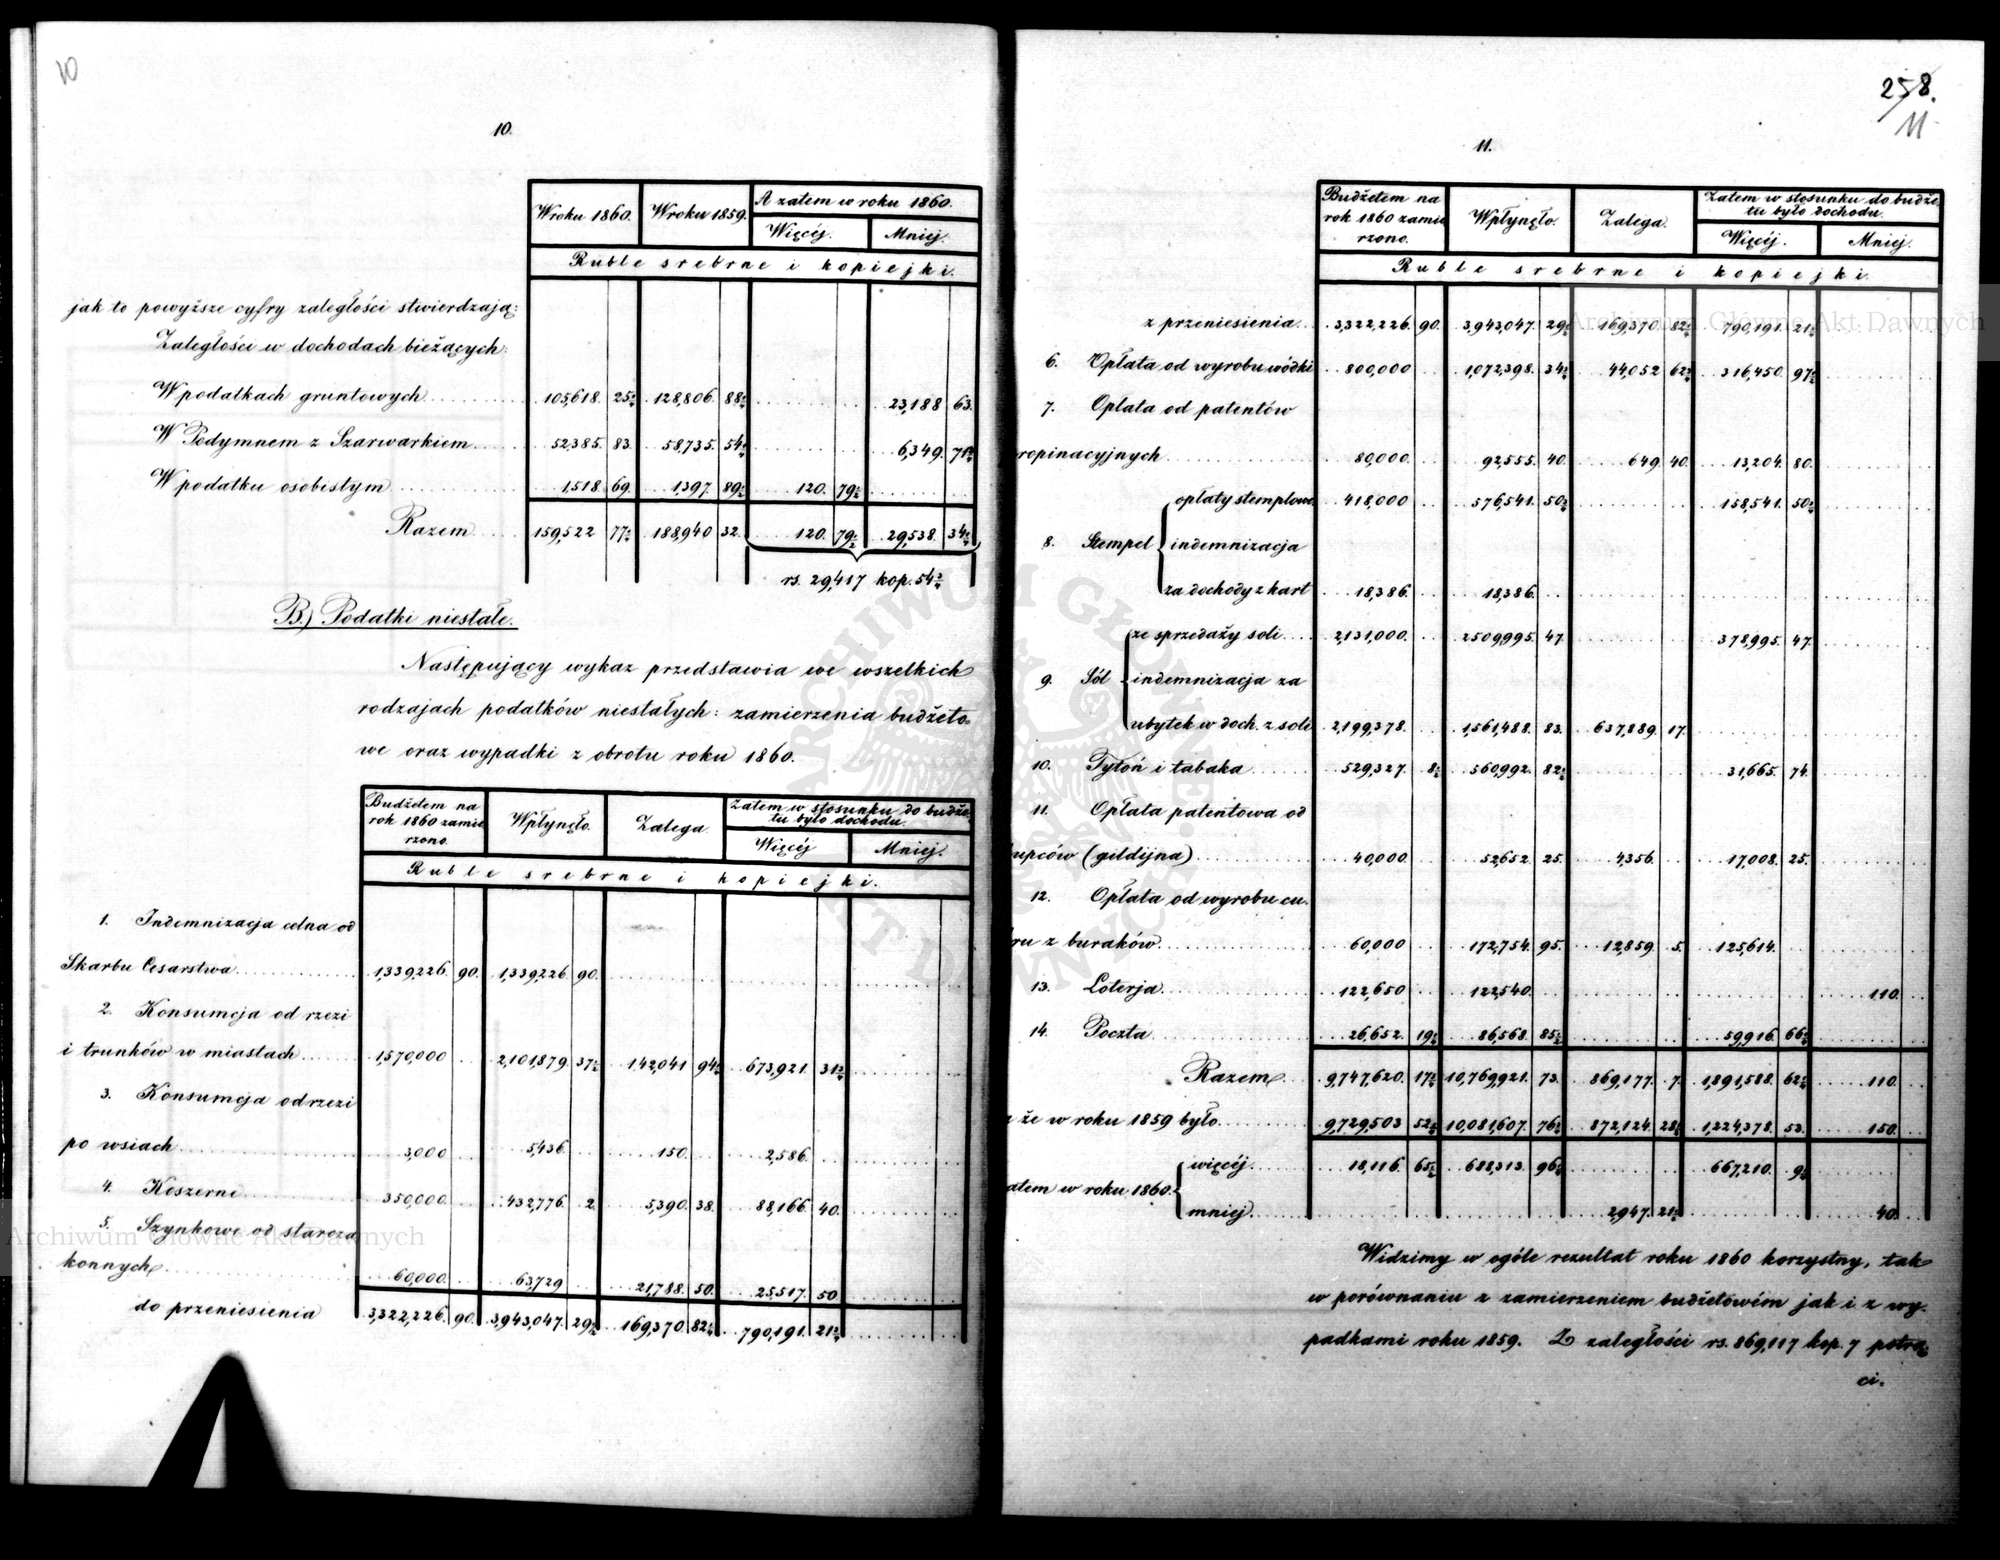 10
10.
W roku 1860. W roku 1859. A zatem w roku 1860.
Więcéj. Mniéj.
Ruble srebrne i kopiejki.
jak to powyższe cyfry zaległości stwierdzają:
Zaległości w dochodach bieżących:
W podatkach gruntowych 105,618. 25½ 128,806. 88½ 23,188 63.
W Podymnem z Szarwarkiem 52,385. 83. 58,735. 54½ 6,349. 71½
W podatku osobistym 1,518. 69. 1,397. 89½ 120. 79½
Razem 159,522 77½ 188,940 32. 120. 79½ 29,538. 34½
rs. 29,417 kop. 54¾
B.) Podatki niestałe.
Następujący wykaz przedstawia we wszelkich
rodzajach podatków niestałych: zamierzenia budżeto-
we oraz wypadki z obrotu roku 1860.
Budżetem na rok 1860 zamierzono. Wpłynęło. Zalega. Zatem w stosunku do budżetu było dochodu.
Więcéj Mniéj.
Ruble srebrne i kopiejki.
1. Indemnizacja celna od
Skarbu Cesarstwa 1,339,226. 90. 1,339,226. 90.
2. Konsumcja od rzezi
i trunków w miastach 1,570,000 2,101,879. 37½ 142,041 94¼ 673,921. 31¾
3. Konsumcja od rzezi
po wsiach 3,000 5,436. 150. 2,586.
4. Koszerne 350,000. 432,776. 2. 5,390. 38. 88,166. 40.
5. Szynkowe od staroza
konnych 60,000. 63,729 21,788. 50. 25,517. 50
do przeniesienia 3,322,226. 90. 3,943,047. 29½ 169,370. 82¼ 790,191. 21¾
258.
11
11.
Budżetem na rok 1860 zamierzono. Wpłynęło. Zalega. Zatem w stosunku do budżetu było dochodu.
Więcéj. Mniéj.
Ruble srebrne i kopiejki.
z przeniesienia 3,322,226. 90. 3,943,047. 29½ 169,370. 82¼ 790,191. 21¾
6. Opłata od wyrobu wódki 800,000 1,072,398. 34¾ 44,052 62¾ 316,450. 97½
7. Opłata od patentów
ropinacyjnych 80,000. 92,555. 40. 649. 40. 13,204. 80.
opłaty stemplowe 418,000 576,541. 50¾ 158,541. 50¾
8. Stempel indemnizacja
za dochody z kart 18,386. 18,386.
ze sprzedaży soli 2,131,000. 2,509,995. 47. 378,995. 47.
9. Sól indemnizacja za
ubytek w doch. z soli 2,199,378. 1,561,488. 83. 637,889. 17.
10. Tytoń i tabaka 529,327. 8½ 560,992. 82½ 31,665. 74.
11. Opłata patentowa od
upców (gildijna) 40,000. 52,652. 25. 4,356. 17,008. 25.
12. Opłata od wyrobu cu.
ru z buraków 60,000 172,754. 95. 12,859. 5. 125,614.
13. Loterja 122,650 122,540. 110.
14. Poczta 26,652. 19½ 86,568. 85½ 59,916. 66¼
Razem 9,747,620. 17¾ 10,769,921. 73. 869,177. 7. 1,891,588. 62½ 110.
że w roku 1859 było 9,729,503 52½ 10,081,607. 76½ 872,124. 28½ 1,224,378. 53. 150.
więcéj. 18,116. 65½ 688,313. 96½ 667,210. 9½
atem w roku 1860.
mniéj. 2,947. 21½ 40.
Widzimy w ogóle rezultat roku 1860 korzystny, tak
w porównaniu z zamierzeniem budżetowém jak i z wy-
padkami roku 1859. Z zaległości rs. 869,117 kop. 7 potrą-
ci.
Archiwum Główne Akt Dawnych
Archiwum Główne Akt Dawnych
ARCHIWUM GŁÓWNE AKT DAWNYCH